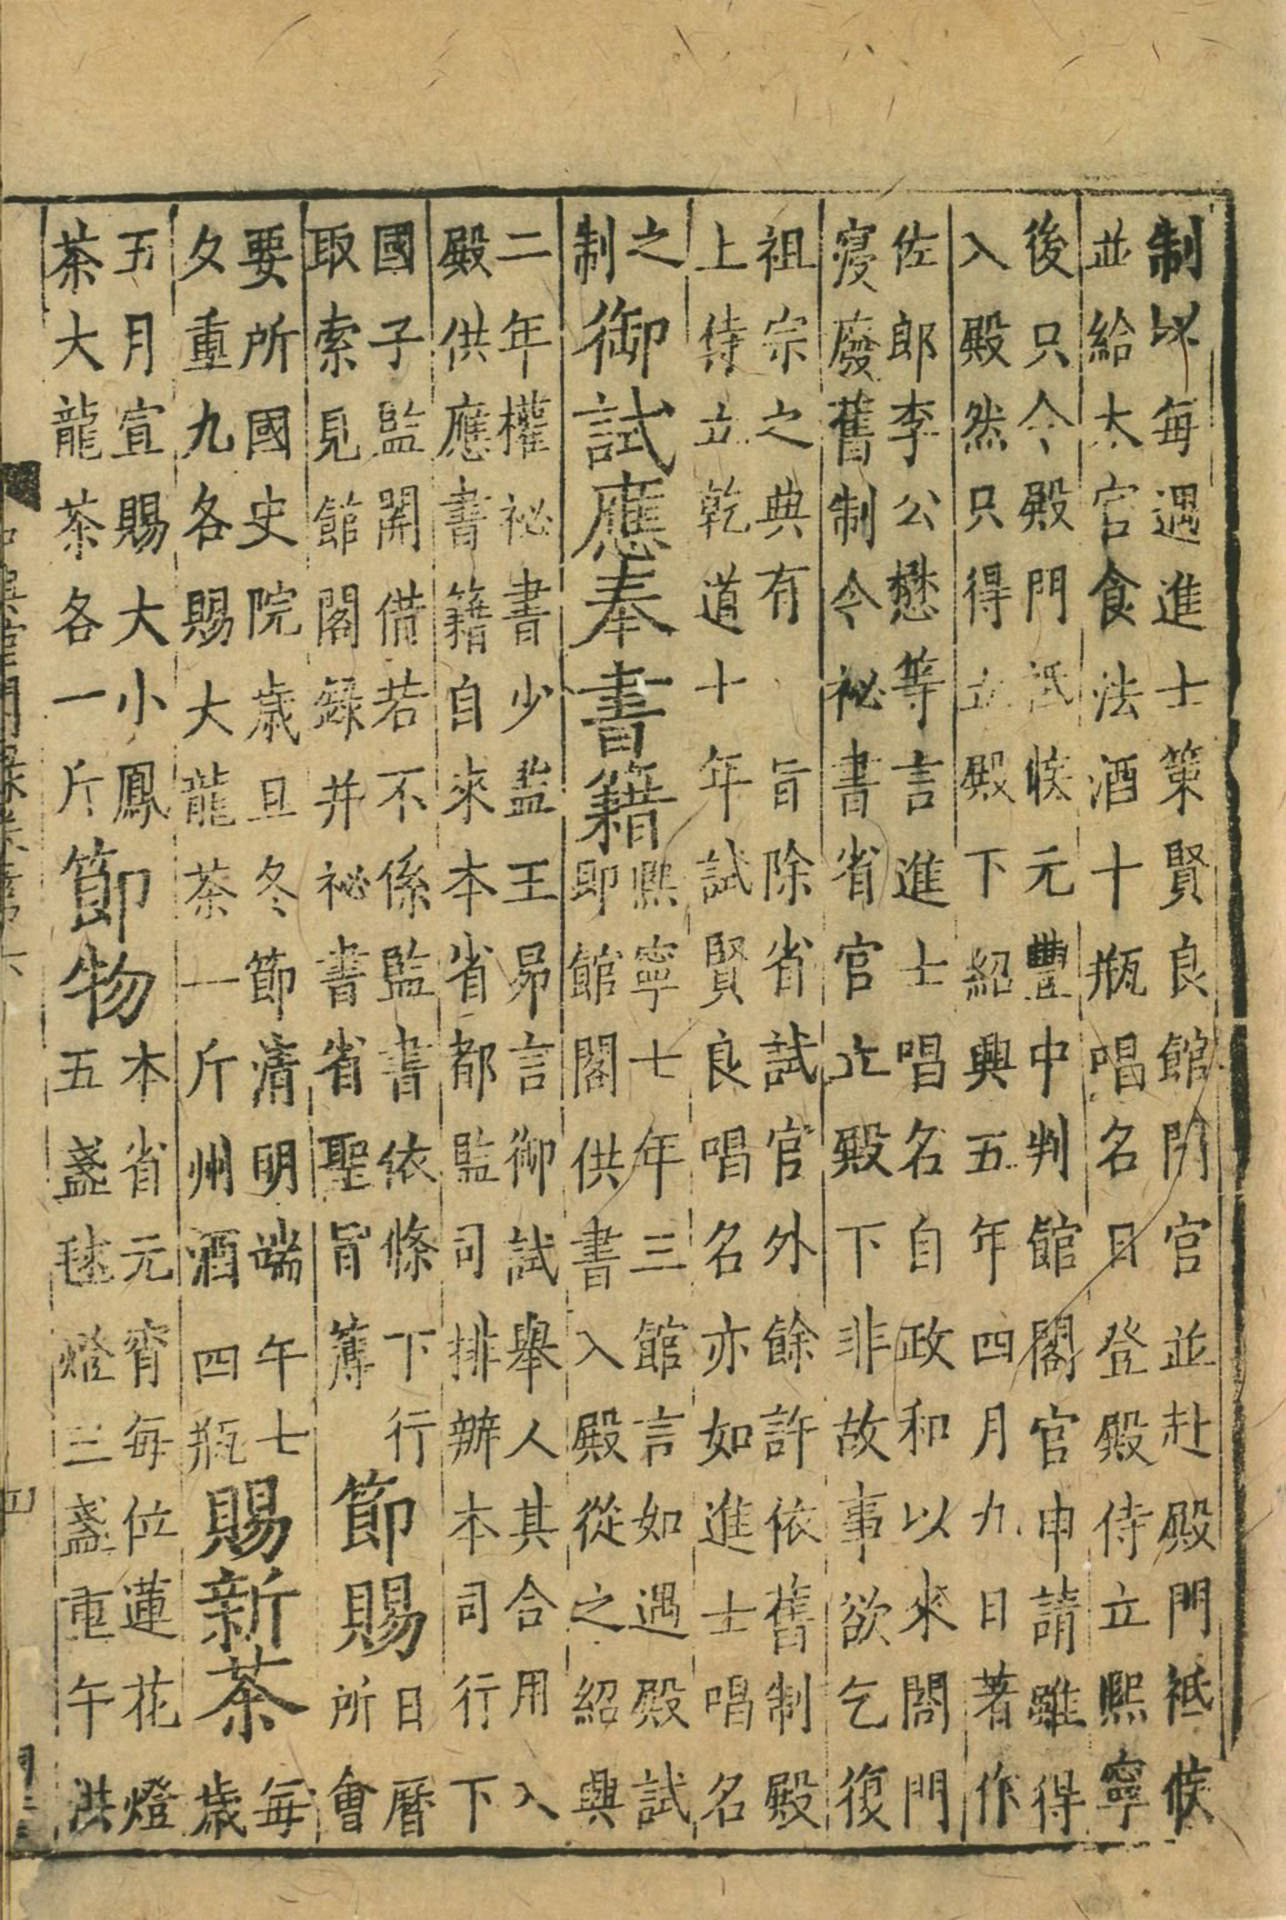 制以每遇進士策賢良館閣官並赴殿門祗候
並給太官食法酒十瓶唱名日登殿侍立熙寧
後只令殿門祗候元豐中判館閣官申請雖得
入殿然只得立殿下紹興五年四月九日著作
佐郎李公懋等言進士唱名自政和以來閤門
寖廢舊制令祕書省官立殿下非故事欲乞復
祖宗之典有旨除省試官外餘許依舊制殿
上侍立乾道十年試賢良唱名亦如進士唱名
之
制
御試應奉書籍
熙寧七年三館言如遇殿試
即館閣供書入殿從之紹興
二年權祕書少監王昂言御試舉人其合用入
殿供應書籍自來本省都監司排辦本司行下
國子監開借若不係監書依條下行
取索見館閣錄并祕書省聖旨簿
節賜
日曆
所會
要所國史院歲旦冬節清明端午七
夕重九各賜大龍茶一斤州酒四瓶
賜新茶
每
歲
五月宣賜大小鳳
茶大龍茶各一斤
節物
本省元宵每位蓮花燈
五盞毬燈三盞重午洪